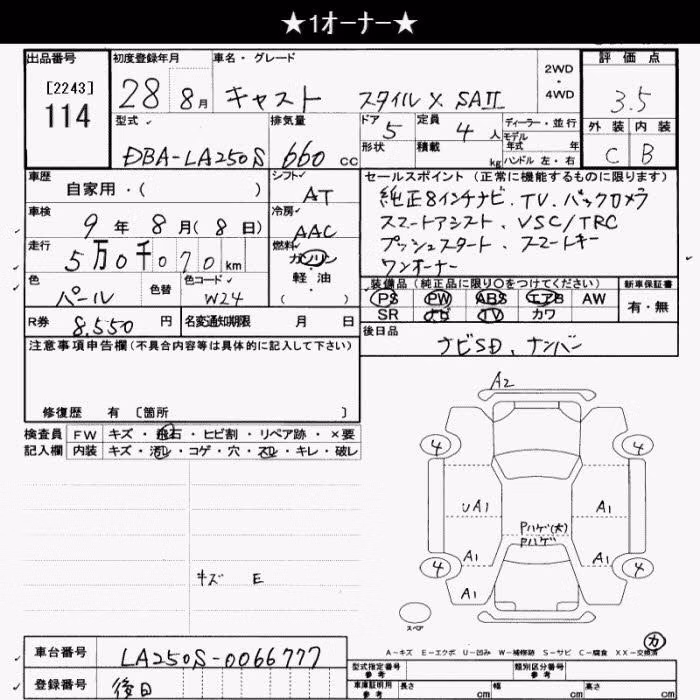 ★1オーナー★
出品番号
[2243]
114
初度登録年月
28 8月
車名・グレード
キャスト スタイル X SAⅡ
2WD
・
4WD
評価点
3.5
外装 内装
C B
型式
DBA-LA250S
排気量
660 cc
ドア
5
定員
4 人
形状
積載
kg
ディーラー・並行
モデル
年式 年
ハンドル 左・右
車歴
自家用・( )
シフト
AT
車検
9年 8月(8日)
冷房
AAC
走行
5万0千070km
燃料
ガソリン
軽・油
( )
色
パール
色替
色コード
W24
R券
8,550円
名変通知期限 月 日
セールスポイント(正常に機能するものに限ります)
純正8インチナビ、TV、バックカメラ
スマートアシスト、VSC/TRC
プッシュスタート、スマートキー
ワンオーナー
装備品(純正品に限り○をつけてください)
PS PW ABS エアB AW
SR ナビ TV カワ
新車保証書
有・無
後日品
ナビSD、ナンバー
注意事項申告欄(不具合内容等は具体的に記入して下さい)
修復歴 有〔箇所 〕
検査員 FW キズ・飛石・ヒビ割・リペア跡・×要
記入欄 内装 キズ・汚れ・コゲ・穴・スレ・キレ・破レ
キズ E
A2
4
4
UA1
A1
Pハゲ(大)
Pハゲ
A1
A1
4
4
A1
スペア
カ
A〜キズ E〜エクボ U〜凹み W〜補修跡 S〜サビ C〜腐食 XX〜交換済
車台番号
LA250S-0066777
登録番号
後日
型式指定番号
参考
類別区分番号
参考
車庫証明用
参考
長さ cm
幅 cm
高さ cm